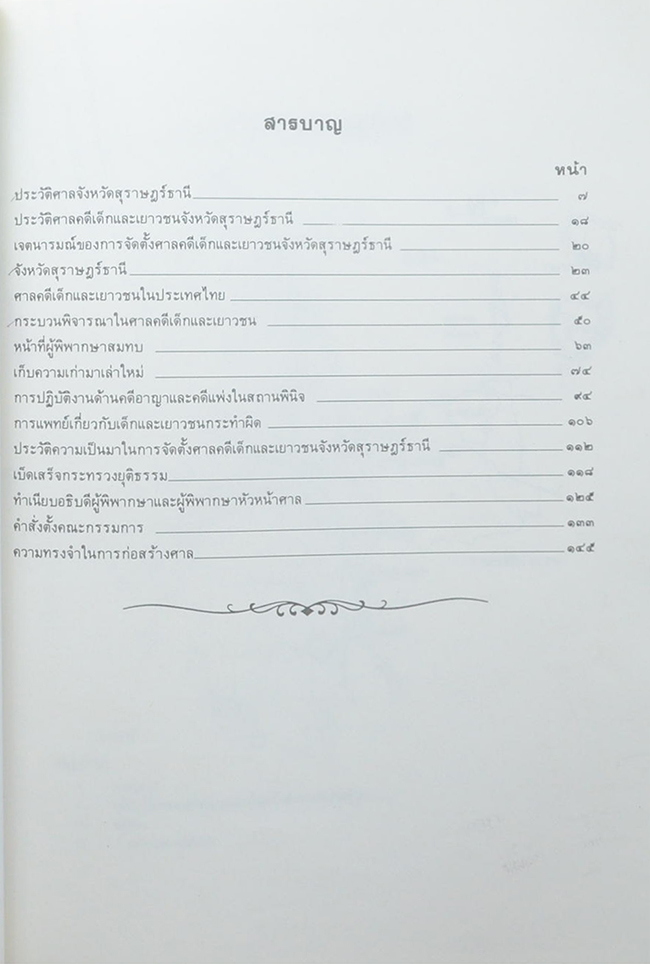 สารบาญ
หน้า
ประวัติศาลจังหวัดสุราษฎร์ธานี ๗
ประวัติศาลคดีเด็กและเยาวชนจังหวัดสุราษฎร์ธานี ๑๘
เจตนารมณ์ของการจัดตั้งศาลคดีเด็กและเยาวชนจังหวัดสุราษฎร์ธานี ๒๐
จังหวัดสุราษฎร์ธานี ๒๓
ศาลคดีเด็กและเยาวชนในประเทศไทย ๔๔
กระบวนพิจารณาในศาลคดีเด็กและเยาวชน ๕๐
หน้าที่ผู้พิพากษาสมทบ ๖๓
เก็บความเก่ามาเล่าใหม่ ๗๔
การปฏิบัติงานด้านคดีอาญาและคดีแพ่งในสถานพินิจ ๙๔
การแพทย์เกี่ยวกับเด็กและเยาวชนกระทำผิด ๑๐๖
ประวัติความเป็นมาในการจัดตั้งศาลคดีเด็กและเยาวชนจังหวัดสุราษฎร์ธานี ๑๑๒
เบ็ดเสร็จกระทรวงยุติธรรม ๑๑๘
ทำเนียบอธิบดีผู้พิพากษาและผู้พิพากษาหัวหน้าศาล ๑๒๕
คำสั่งตั้งคณะกรรมการ ๑๓๓
ความทรงจำในการก่อสร้างศาล ๑๔๕